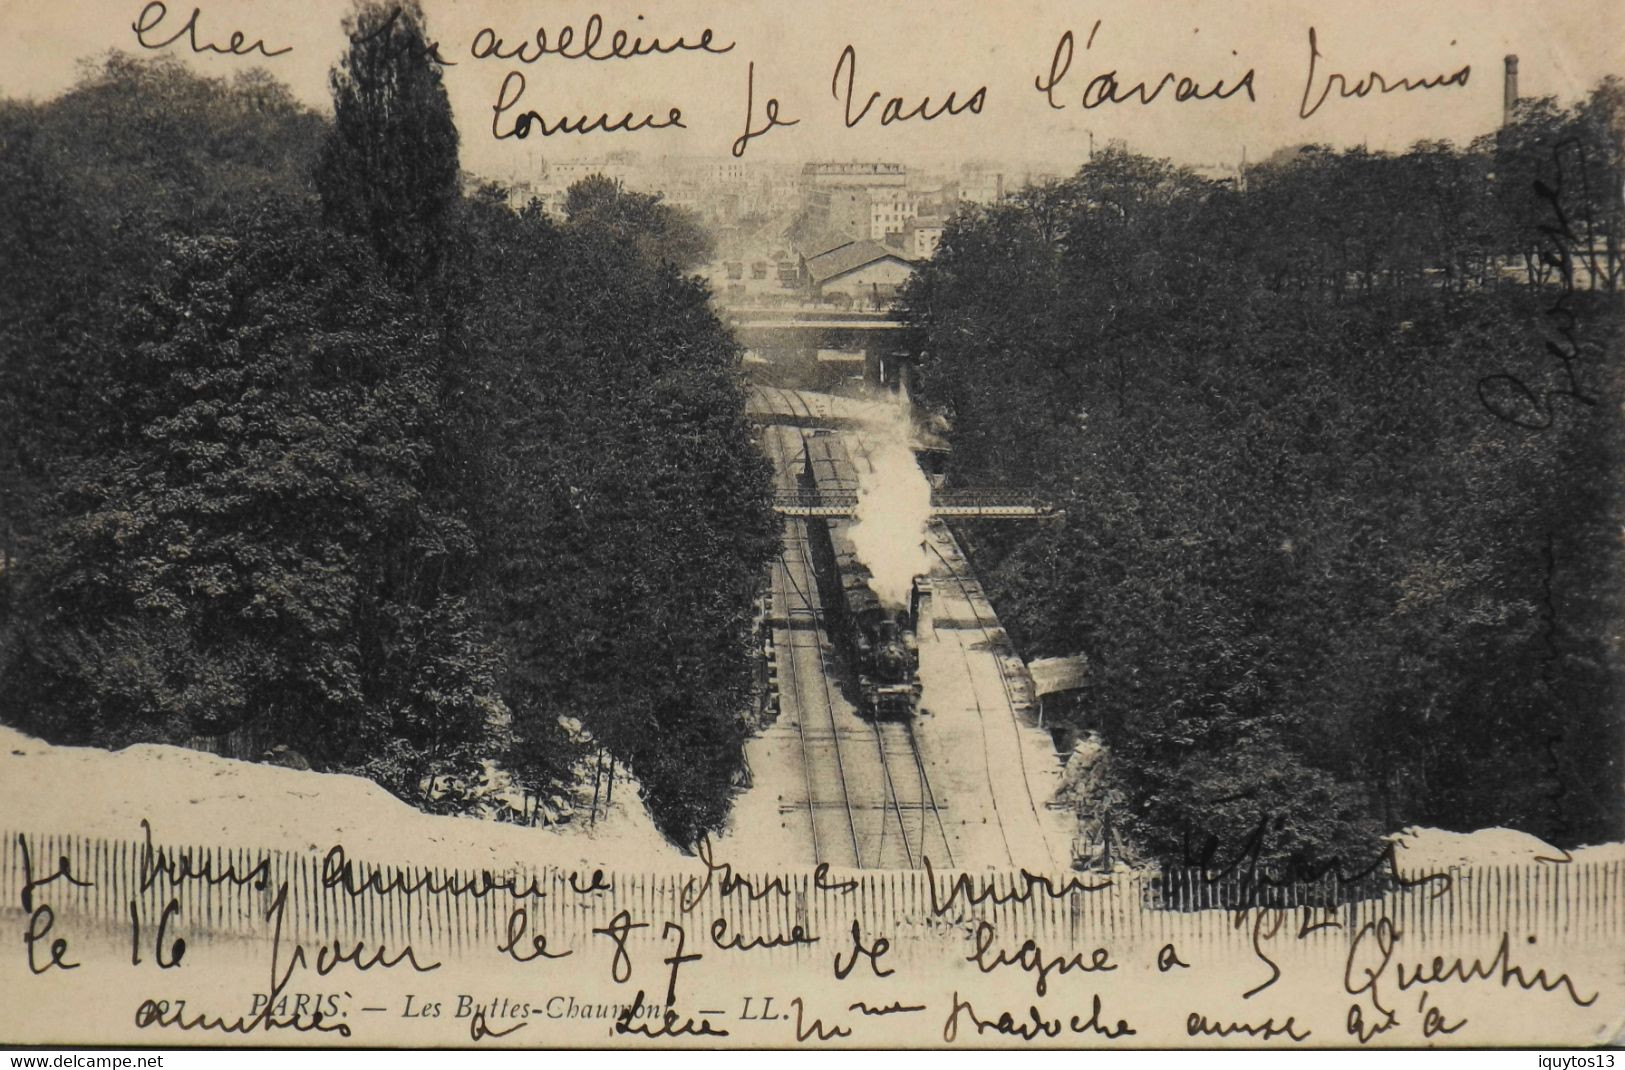 Cher Madeleine
Comme je vous l'avais promis
je vous annonce donc mon départ
le 16 pour le 87eme de ligne a St Quentin
197 PARIS. — Les Buttes-Chaumont. — LL.
amitiés a Mme Pradoche ainsi qu'à
delcampe.net
iquytos13